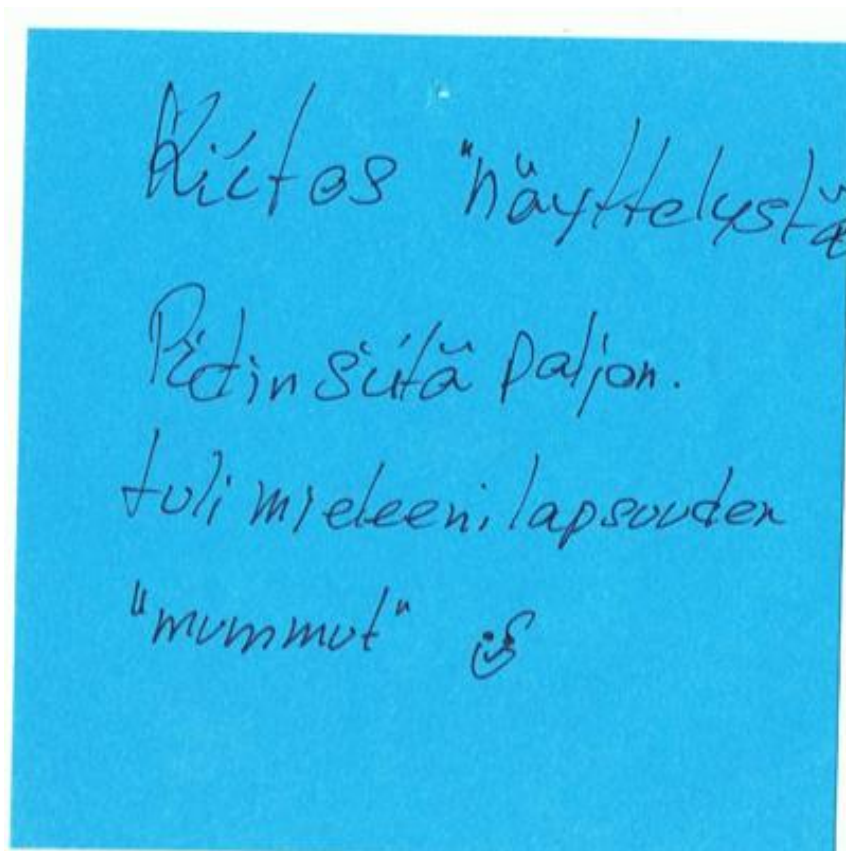 Kiitos "näyttelystä
Pidin siitä paljon.
tuli mieleeni lapsuuden
"mummut"